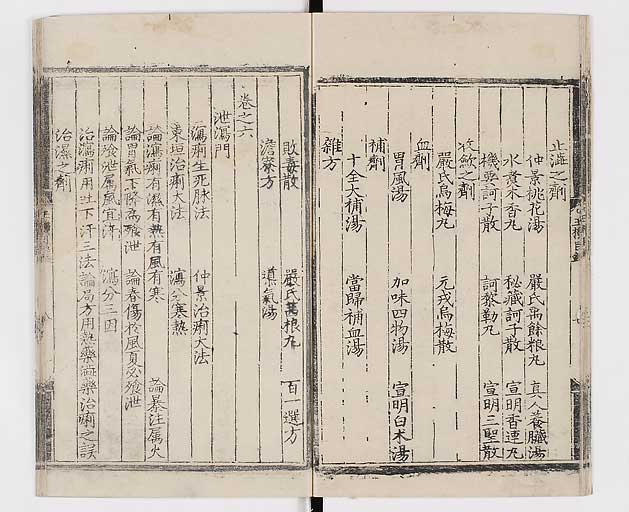 止澁之劑
仲景桃花湯　嚴氏禹餘粮丸　真人養臟湯
水煮木香丸　秘藏訶子散　宣明香連丸
機要訶子散　訶黎勒丸　宣明三聖散
收歛之劑
嚴氏烏梅丸　元戎烏梅散
血劑
胃風湯　加味四物湯　宣明白术湯
補劑
十全大補湯　當歸補血湯
雜方
敗毒散　嚴氏萬根丸　百一選方
澹寮方　氣湯
卷之六
泄瀉門
瀉痢生死脉法　仲景治痢大法
東垣治痢大法　瀉分寒熱
論瀉痢有濕有熱有風有寒　論暴注属火
論胃氣下降為飱泄　論春傷於風夏必飱泄
論飱泄属風宜汗　瀉分三因
治瀉痢用吐下汗三法　論局方用熱藥澁藥治痢之誤
治濕之劑